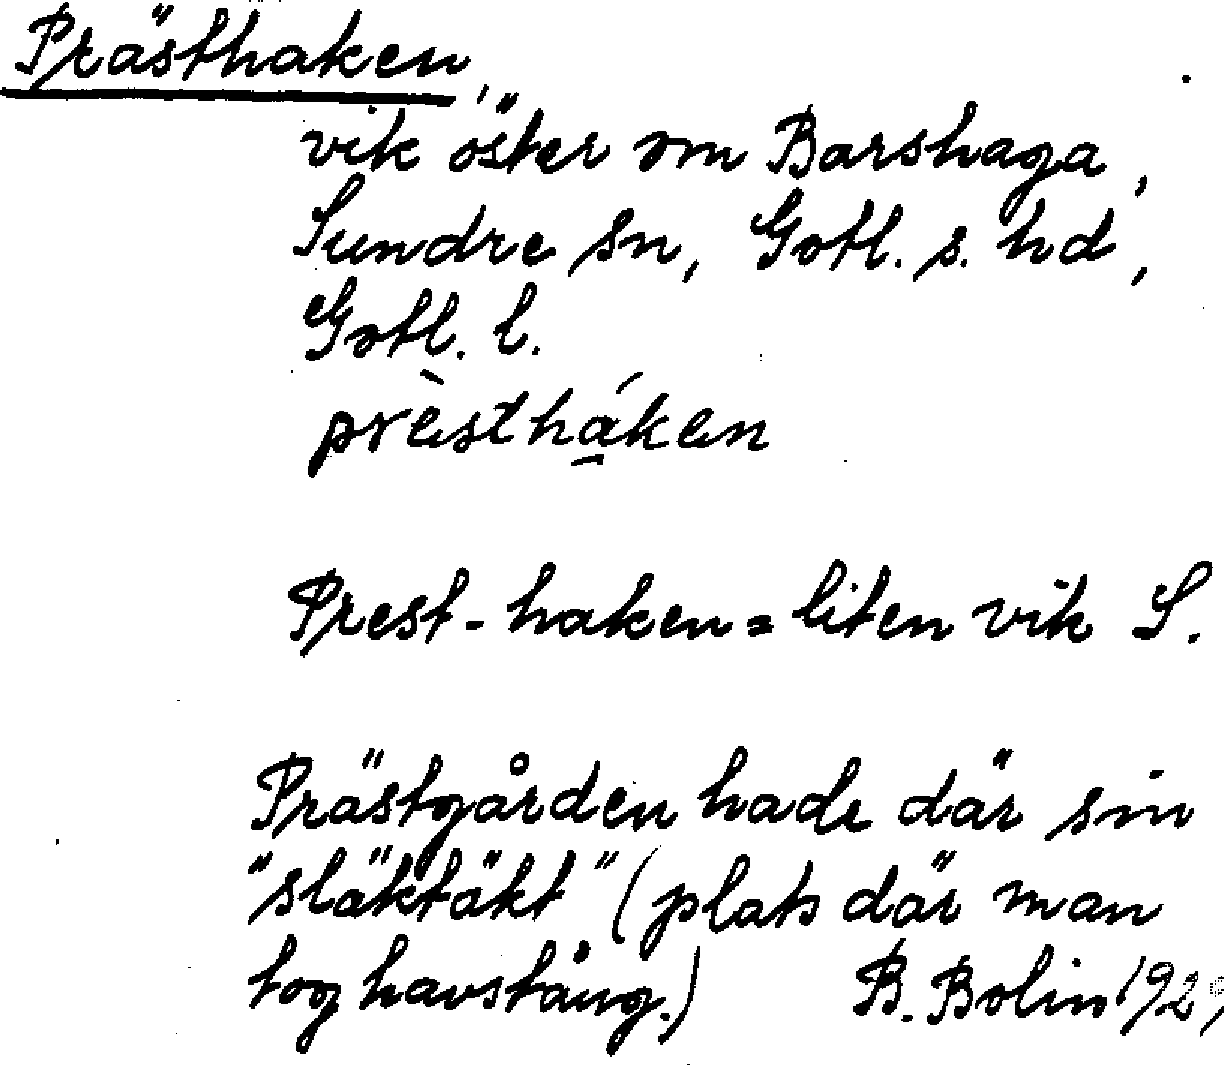 Prästhaken,
vik öster om Barshaga,
Sundre sn, Gotl. s. hd,
Gotl. l.
prèstháken
Prest-haken = liten vik S.
Prästgården hade där sin
"släktäkt" (plats där man
tog havstång.) B. Bolin 1929